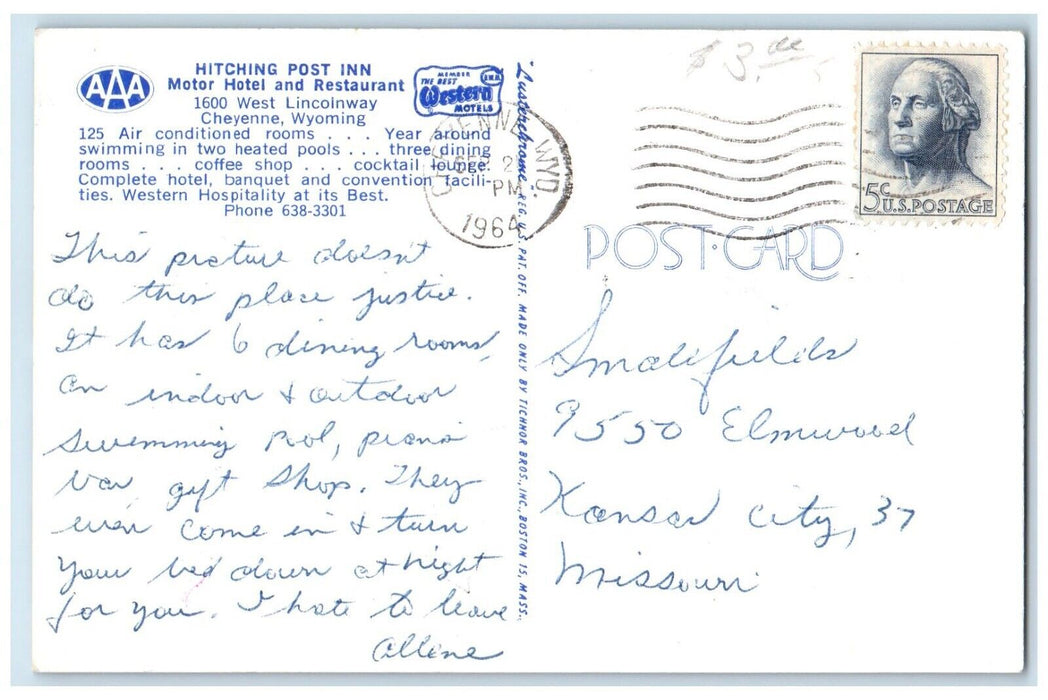 AAA
HITCHING POST INN
Motor Hotel and Restaurant
1600 West Lincolnway
Cheyenne, Wyoming
125 Air conditioned rooms . . . Year around
swimming in two heated pools . . . three dining
rooms . . . coffee shop . . . cocktail lounge.
Complete hotel, banquet and convention facili-
ties. Western Hospitality at its Best.
Phone 638-3301
MEMBER
THE BEST
Western
MOTELS
CHEYENNE, WYO.
SEP 2
PM
1964
$3.00
5c U.S. POSTAGE
POST CARD
"Lusterchrome" REG. U.S. PAT. OFF. MADE ONLY BY TICHNOR BROS., INC., BOSTON 15, MASS.
This picture doesn't
do this place justice.
It has 6 dining rooms,
an indoor & outdoor
swimming pool, piano
bar, gift shop. They
even come in & turn
your bed down at night
for you. I hate to leave
Allene
Smalifields
9550 Elmwood
Kansas City, 37
Missouri